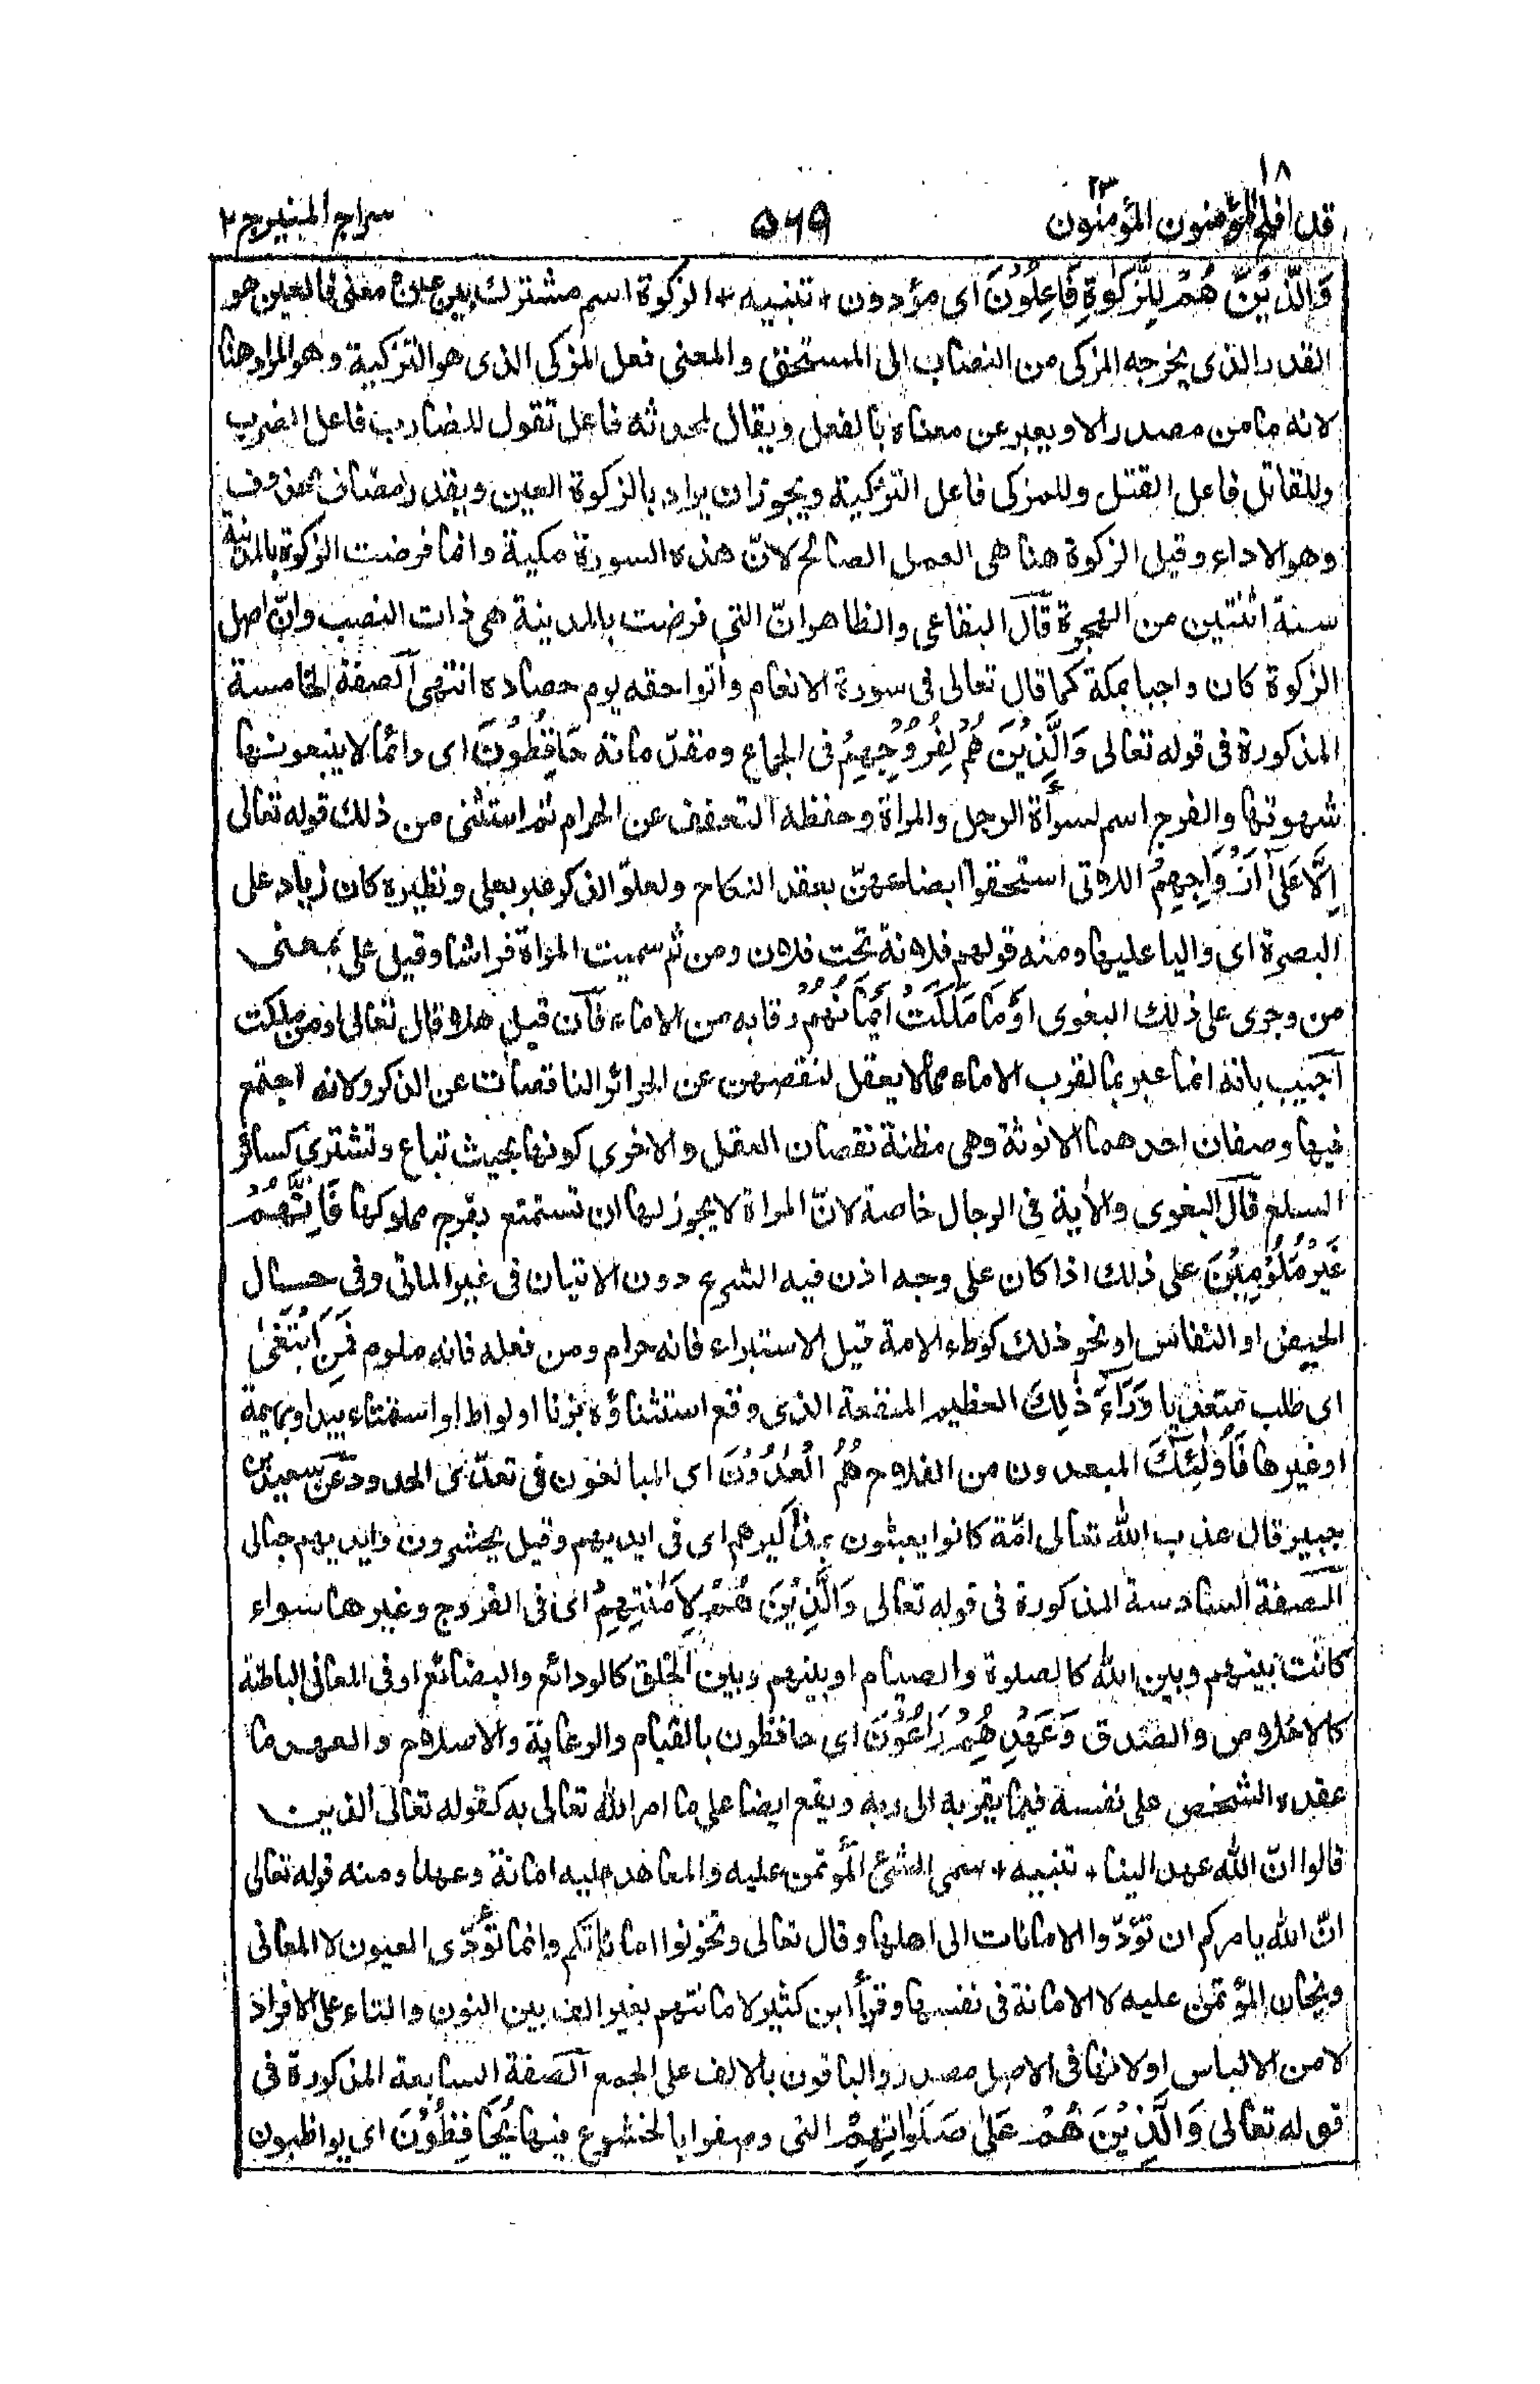 قد افلح المؤمنون ١٨ المؤمنون ٢٣
٥٦٩
سراج المنير ج ٢
وَالَّذِيْنَ هُمْ لِلزَّكٰوةِ فَاعِلُوْنَ اى مؤدون + تنبيه + الزكوة اسم مشترك بين عين ومعنى فالعين هو
القدر الذى يخرجه المزكى من النصاب الى المستحق والمعنى فعل المزكى الذى هو التزكية وهو المراد هنا
لانه ما من مصدر الا ويعبر عن معناه بالفعل ويقال لمحدثه فاعل تقول للضارب فاعل الضرب
وللقاتل فاعل القتل وللمزكى فاعل التزكية ويجوز ان يراد بالزكوة العين ويقدر مضاف محذوف
وهو الاداء وقيل الزكوة هنا هى العمل الصالح لانّ هذه السورة مكية وانما فرضت الزكوة بالمدينة
سنة اثنتين من الهجرة قال البقاعى والظاهر انّ التى فرضت بالمدينة هى ذات النصب وانّ اصل
الزكوة كان واجبا بمكة كما قال تعالى فى سورة الانعام واٰتوا حقه يوم حصاده انتهى الصفة الخامسة
المذكورة فى قوله تعالى وَالَّذِيْنَ هُمْ لِفُرُوْجِهِمْ فى الجماع ومقدّماته حَافِظُوْنَ اى دائما لا يتبعونها
شهوتها والفرج اسم لسوأة الرجل والمرأة وحفظه التعفف عن الحرام ثم استثنى من ذلك قوله تعالى
اِلَّا عَلٰى اَزْوَاجِهِمْ اللاتى استحقوا ابضاعهنّ بعقد النكاح ولعلوّ الذكر عبر بعلى ونظيره كان زياد على
البصرة اى واليا عليها ومنه قولهم فلانة تحت فلان ومن ثم سميت المرأة فراشا وقيل على بمعنى
من وجرى على ذلك البغوى اَوْ مَا مَلَكَتْ اَيْمَانُهُمْ رقابه من الاماء فان قيل هلا قال تعالى او من ملكت
اجيب بانه انما عبر بما لقرب الاماء مما لا يعقل لنقصهن عن الحرائر الناقصات عن الذكور ولانه اجتمع
فيها وصفان احدهما الانوثة وهى مظنة نقصان العقل والاخرى كونها بحيث تباع وتشترى كسائر
السلع قال البغوى والاٰية فى الرجال خاصة لانّ المراة لا يجوز لها ان تستمتع بفرج مملوكها فَاِنَّهُمْ
غَيْرُ مَلُوْمِيْنَ على ذلك اذا كان على وجه اذن فيه الشرع دون الاتيان فى غير الماتى وفى حال
الحيض او النفاس او نحو ذلك كوطء الامة قبل الاستبراء فانه حرام ومن فعله فانه ملوم فَمَنِ ابْتَغٰى
اى طلب متعديا وَرَاءَ ذٰلِكَ العظيم المنفعة الذى وقع استثناؤه بزنا او لواط او استمناء بيد او بهيمة
او غيرها فَاُولٰئِكَ المبعدون من الفلاح هُمُ الْعٰدُوْنَ اى المبالغون فى تعدّى الحدود وعن سعيد بن
جبير قال عذب الله تعالى امّة كانوا يعبثون بمذاكيرهم اى فى ايديهم وقيل يحشرون وايديهم حبالى
الصفة السادسة المذكورة فى قوله تعالى وَالَّذِيْنَ هُمْ لِاَمٰنٰتِهِمْ اى فى الفروج وغيرها سواء
كانت بينهم وبين الله كالصلوة والصيام او بينهم وبين الخلق كالودائع والبضائع او فى المعانى الباطنة
كالاخلاص والصدق وَعَهْدِهِمْ رَاعُوْنَ اى حافظون بالقيام والرعاية والاصلاح والعهد ما
عقده الشخص على نفسه فيما يقربه الى ربه ويقع ايضا على ما امر الله تعالى به كقوله تعالى الذين
قالوا انّ الله عهد الينا + تنبيه + سمى الشئ المؤتمن عليه والمعاهد عليه امانة وعهدا ومنه قوله تعالى
انّ الله يامركم ان تؤدّوا الامانات الى اهلها وقال تعالى وتخونوا اماناتكم وانما تؤدّى العيون لا المعانى
ويخان المؤتمن عليه لا الامانة فى نفسها وقرأ ابن كثير لامانتهم بغير الف بين النون والتاء على الافراد
لامن الالباس او لانها فى الاصل مصدر والباقون بالالف على الجمع الصفة السابعة المذكورة فى
قوله تعالى وَالَّذِيْنَ هُمْ عَلٰى صَلَوٰاتِهِمْ التى وصفوا بالخشوع فيها يُحَافِظُوْنَ اى يواظبون